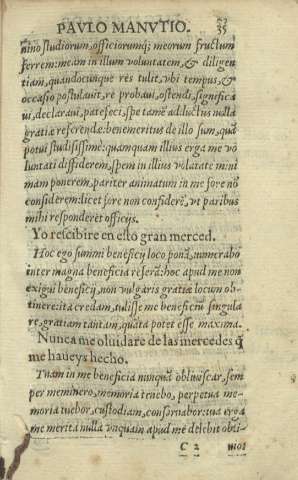 PAVLO MANVTIO.
35
nino studiorum, officiorumq; meorum fructum
ferrem: meam in illum voluntatem, & diligen
tiam, quandocunque res tulit, vbi tempus, &
occasio postulauit, re probaui, ostendi, significa
ui, declaraui, patefeci, spe tamē adductus nulla
gratiæ referendæ: benemeritus de illo sum, quā
potui studiosissimè: quamquam illius erga me vo
luntati diffiderem, spem in illius volūtate mini
mam ponerem, pariter animatum in me fore nō
considerem: licet fore non considerē, vt paribus
mihi responderet officijs.
Yo rescibire en esto gran merced.
Hoc ego summi beneficij loco ponā, numerabo
inter magna beneficia referā: hoc apud me non
exigui beneficij, non vulgaris gratiæ locum ob-
tinere: ita credam, tulisse me beneficiū singula
re, gratiam tantam, quāta potest esse maxima.
Nunca me oluidare de las mercedes q̄
me haueys hecho.
Tuam in me beneficia nunquā obliuiscar, sem
per meminero, memoria tenebo, perpetua me-
moria tuebor, custodiam, conseruabor: tua erga
me merita nulla vnquam apud me delebit obli-
C 2
mo: